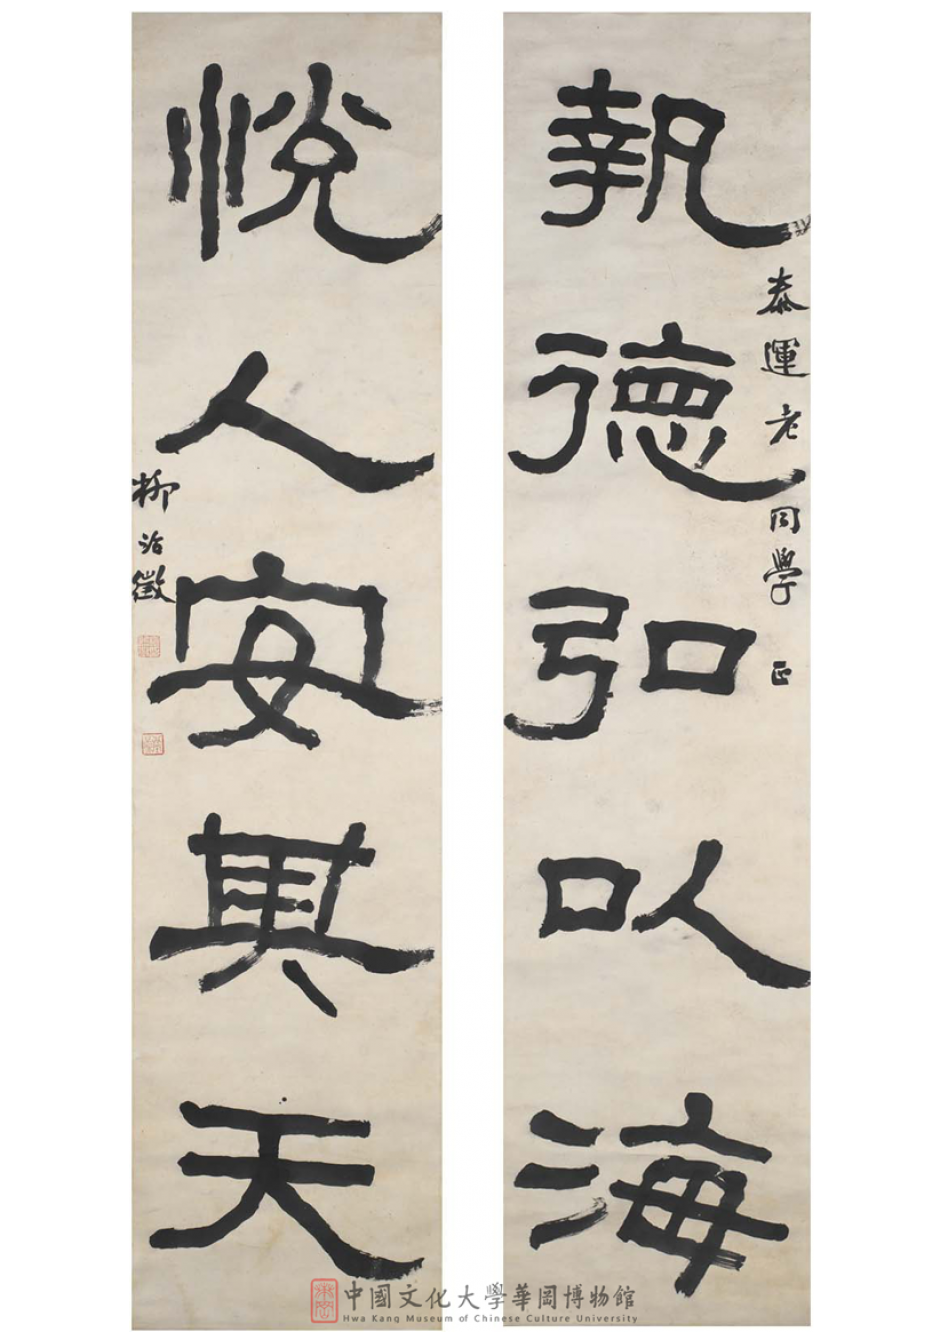 執德弘㕥海
泰運老同學 正
悅人安其天
柳詒徵
中國文化大學華岡博物館
Hwa Kang Museum of Chinese Culture University